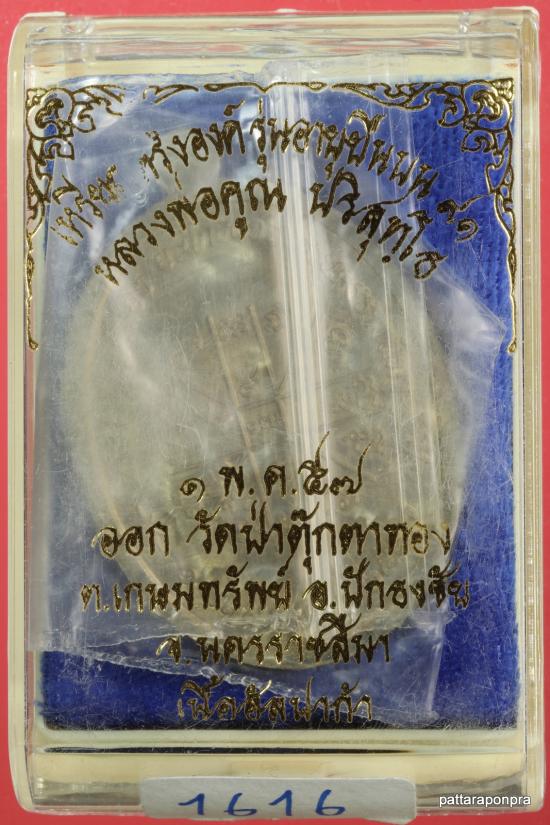 เหรียญ ทรงองค์ รุ่นอายุยืนนาน ๖๑
หลวงพ่อคูณ ปริสุทฺโธ
๑ พ.ค.๕๗
ออก วัดป่าตุ๊กตาทอง
ต.เกษมทรัพย์ อ.ปักธงชัย
จ.นครราชสีมา
เนื้ออัลปาก้า
1616
pattaraponpra